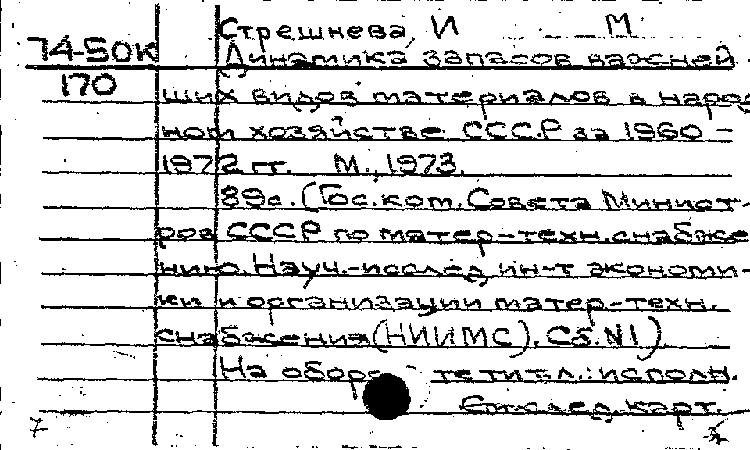 Стрешнева И М
74-50К Динамика запасов важней-
170
ших видов материалов в народ
ном хозяйстве СССР за 1960 -
1972 гг. М., 1973.
89с. (Гос.ком. Совета Минист-
ров СССР по матер-техн.снабже
нию. Науч.-исслед ин-т экономи-
ки и организации матер-техн.
снабжения (НИИМС). Сб. N1)
На обор те тит.л.: исполн.
См.след.карт.
7